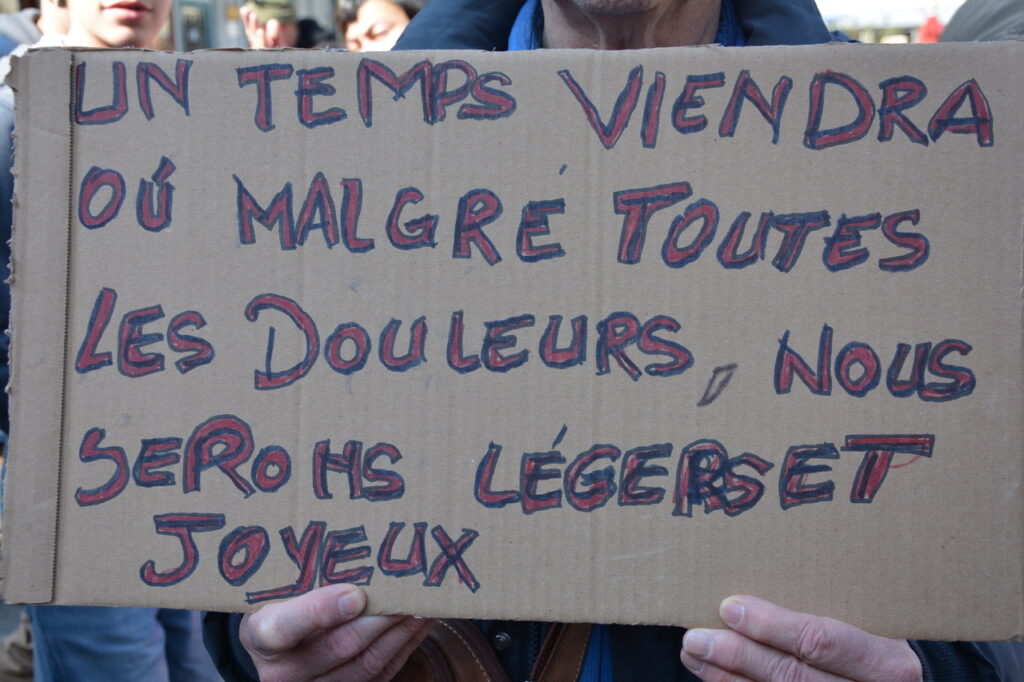 UN TEMPS VIENDRA
OÚ MALGRÉ TOUTES
LES DOULEURS, NOUS
SERONS LÉGERS ET
JOYEUX